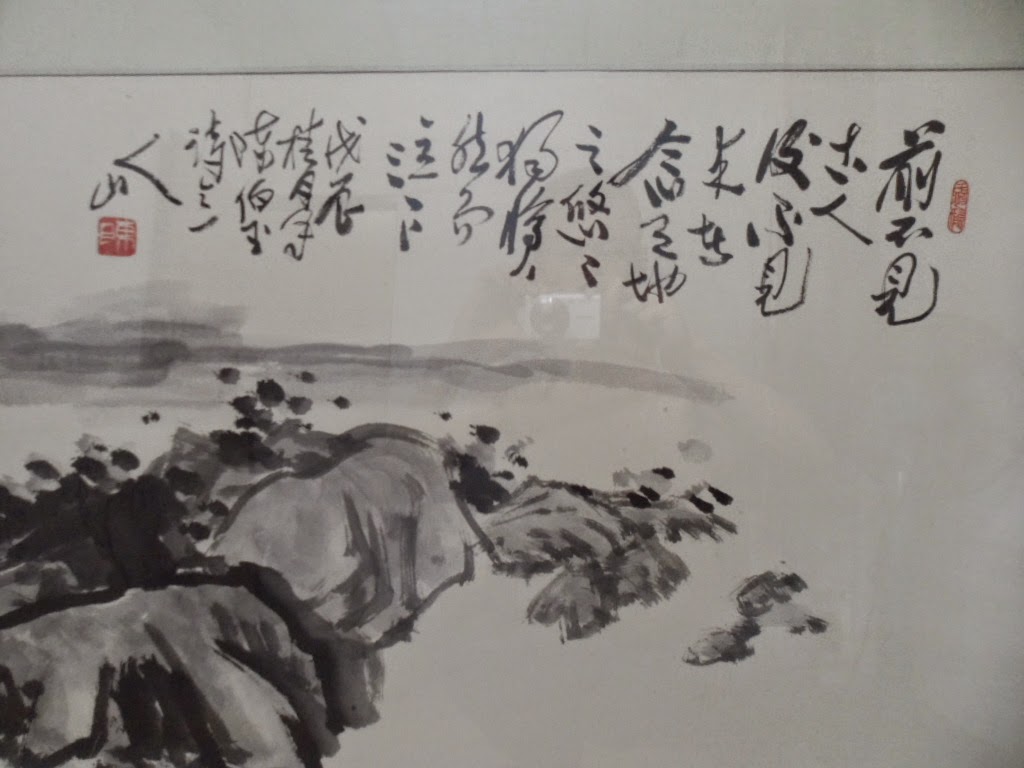 前不見
古人
後不見
来者
念天地
之悠々
獨愴
然而
泣下
戊辰
桂月
陳伯玉
詩
人山